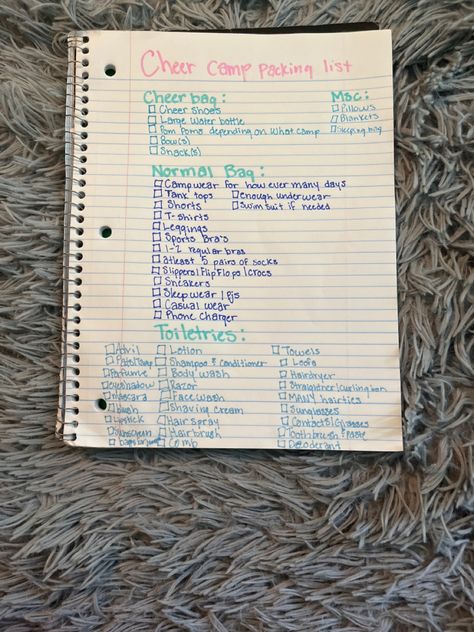 Cheer Camp Packing list
Cheer bag:
Cheer Shoes
Large Water bottle
Pom Poms depending on what camp
Bow(s)
Snack(s)
Msc:
Pillows
Blankets
Sleeping bag
Normal Bag:
Camp wear for how ever many days
Tank tops
Shorts
T-shirts
Leggings
Sports Bra's
1-2 regular bras
atleast 5 pairs of socks
Slippers/Flip Flops/crocs
Sneakers
Sleepwear/Pjs
Casual wear
Phone Charger
enough underwear
Swim suit if needed
Toiletries:
Advil
Perfume
eyeshadow
mascara
blush
lipstick
sunscreen
Lotion
Shampoo & Conditioner
Body wash
Razor
Face wash
Shaving cream
Hair spray
Hairbrush
Comb
Towels
Loofa
Hairdryer
Straightener/curling iron
MANY hairties
Sunglasses
Contacts/Glasses
Toothbrush & Paste
Deodorant